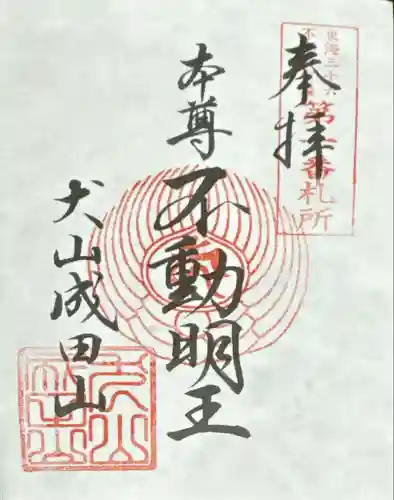 奉拝
東海三十六
不動尊
第一番札所
本尊
不動明王
犬山成田山